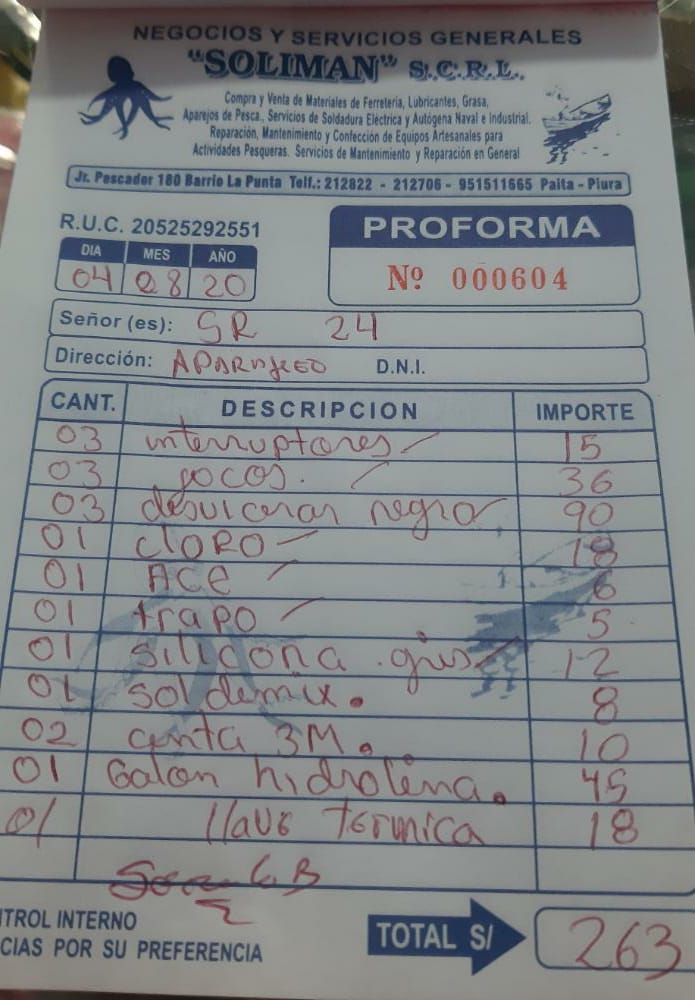 NEGOCIOS Y SERVICIOS GENERALES
"SOLIMAN" S.C.R.L.
Compra y Venta de Materiales de Ferreteria, Lubricantes, Grasa,
Aparejos de Pesca., Servicios de Soldadura Eléctrica y Autógena Naval e Industrial.
Reparación, Mantenimiento y Confección de Equipos Artesanales para
Actividades Pesqueras. Servicios de Mantenimiento y Reparación en General
Jr. Pescador 180 Barrio La Punta Telf.: 212822 - 212706 - 951511665 Paita - Piura
R.U.C. 20525292551
DIA MES AÑO
04 08 20
PROFORMA
Nº 000604
Señor (es): SR 24
Dirección: D.N.I.
CANT. DESCRIPCION IMPORTE
03 interruptores 15
03 focos. 36
03 negro 90
01 CLORO 18
01 ACE 6
01 trapo 5
01 silicona gris 12
01 soldemix. 8
02 cinta 3M. 10
01 Galon hidrolina. 45
01 llave termica 18
G B
TROL INTERNO
CIAS POR SU PREFERENCIA
TOTAL S/ 263